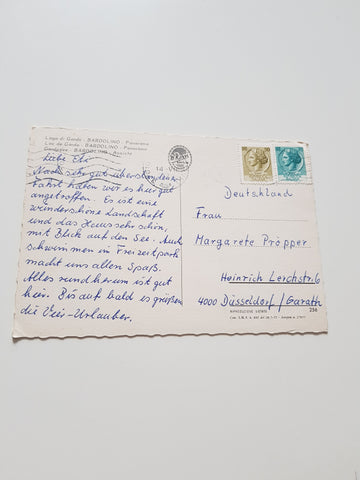 Lago di Garda - BARDOLINO - Panorama
Lac de Garda - BARDOLINO - Panorama
Gardasee - BARDOLINO - Ansicht
Liebe Eki
Nach sehr gut überstandener
Fahrt haben wir es hier gut
angetroffen. Es ist eine
wunderschöne Landschaft
und das Haus sehr schön,
mit Blick auf den See. Auch
schwimmen im Freizeitpark
macht uns allen Spaß.
Alles rundherum ist gut
hier. Bis auf bald es grüßen
die Vier-Urlauber.
Deutschland
Frau
Margarete Pröpper
Heinrich Lerchstr. 6
4000 Düsseldorf/Garath
258